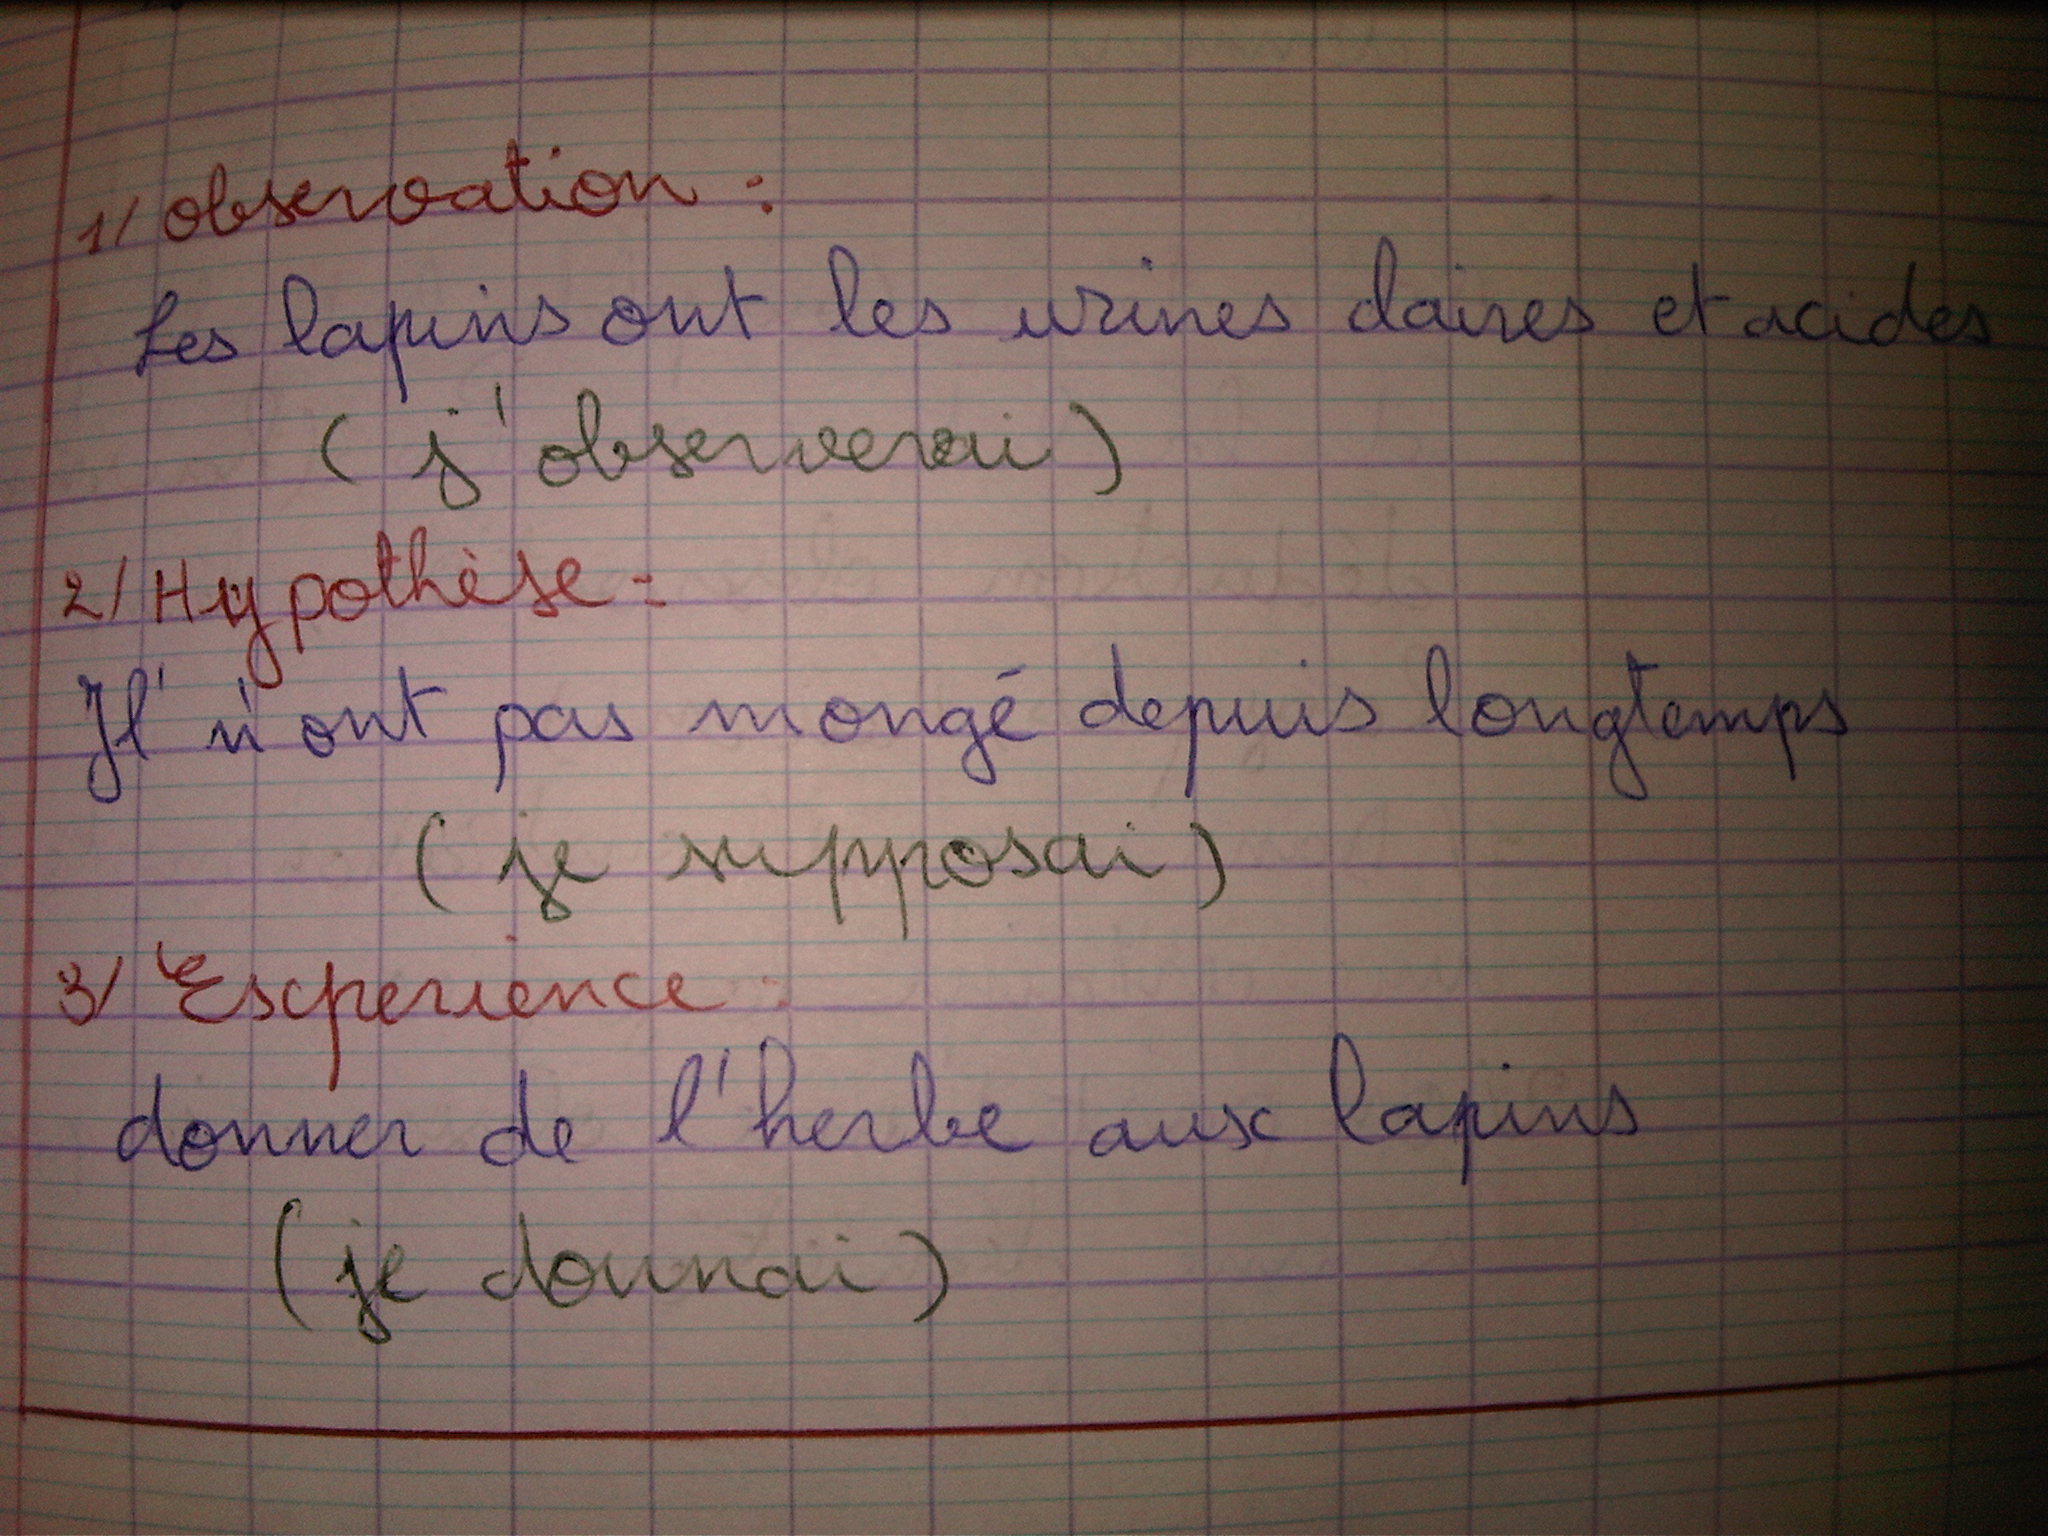 1/ Observation :
Les lapins ont les urines claires et acides
( j'observerai )
2/ Hypothèse :
Il' n'ont pas mangé depuis longtemps
( je supposai )
3/ Experience :
donner de l'herbe aux lapins
( je donnai )